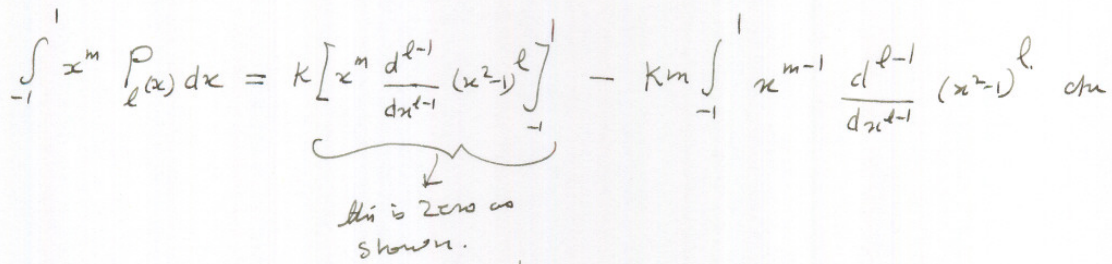 ∫_{-1}^{1} x^m P_ℓ(x) dx = K [x^m d^{ℓ-1}/dx^{ℓ-1} (x²-1)^ℓ]_{-1}^{1} - Km ∫_{-1}^{1} x^{m-1} d^{ℓ-1}/dx^{ℓ-1} (x²-1)^ℓ dx
this is zero as
shown.